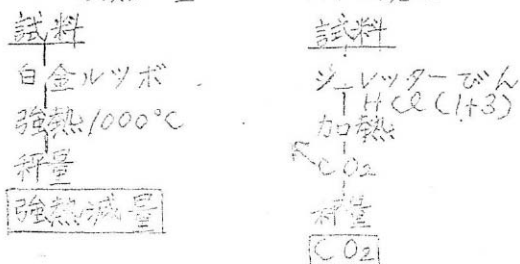 試料
白金ルツボ
強熱1000°C
秤量
強熱減量
試料
シュレッターびん
HCl(1+3)
加熱
CO2
秤量
CO2